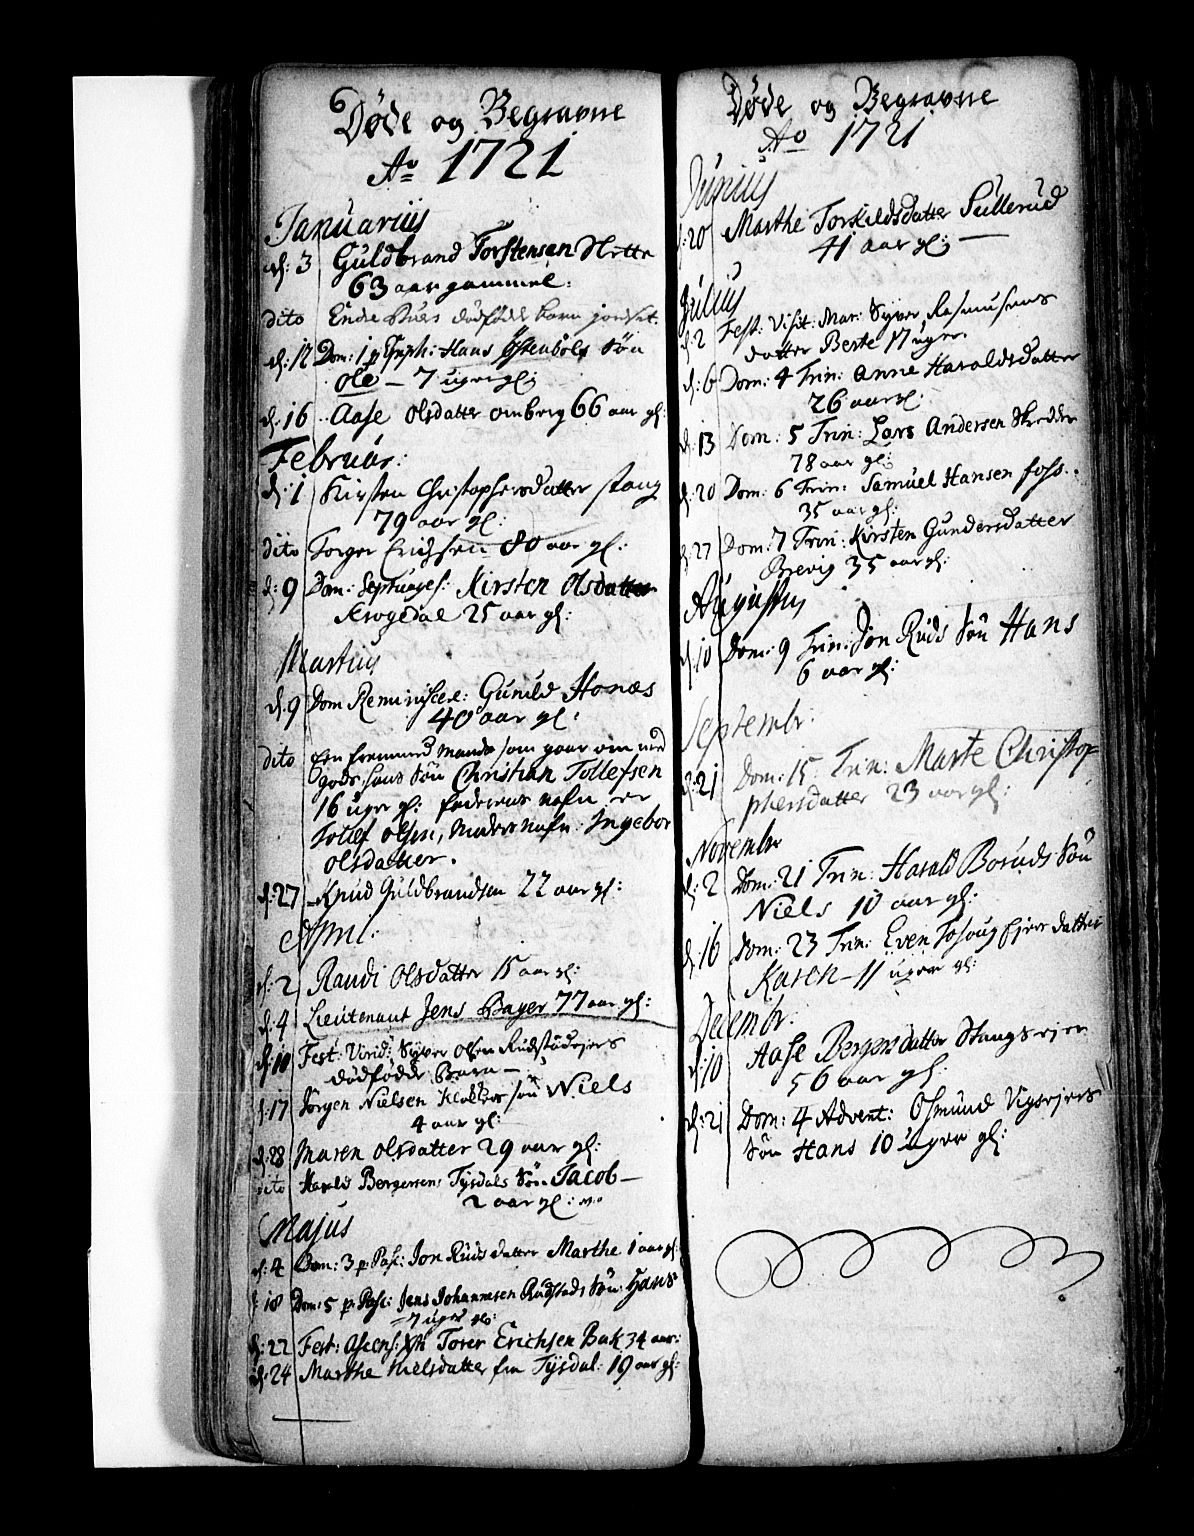 Døde og Begravne
Ao 1721
Januarius
d: 3 Guldbrand Torstensen Hette
63 aar gammel:
dito Ende dødfødde barn jordset.
d: 12 Dom: 1 p Epiph: Hans Østenbøls Søn
Ole – 7 uger gl:
d: 16 Aase Olsdatter omberg 66 aar gl:
Februar:
d: 1 Kirsten Christophersdatter stang
79 aar gl:
dito Torger Erichsen 80 aar gl:
d: 9 Dom: Septuages: Kirsten Olsdatter
Krogedal 25 aar gl:
Martius
d. 9 Dom Reminiscere: Gunild Honæs
40 aar gl:
dito Een fremmed Mands som gaar om med
gods hans Søn Christian Tollefsen
16 uger gl: faderens nafn er
Tollef Olsen, Moders nafn Ingebor
Olsdatter.
d: 27 Knud Guldbrandsen 22 aar gl:
April:
d: 2 Randi Olsdatter 15 aar gl:
d: 4 Lieutenant Jens Bager 77 aar gl:
d: 10 Fest: Virid: Syver Olsen Rudstadejers
dødfødde Barn –
d: 17 Jørgen Nielsen Klokkers søn Niels
4 aar gl:
d. 28 Maren Olsdatter 29 aar gl:
dito Harald Bergersens Tysdals Søn Jacob –
2 aar gl:
Majus
d: 4 Dom: 3 p. Pasc: Jon Ruds datter Marthe 1 aar gl:
d: 18 Dom: 5 p. Pasc: Jens Johannesen Rudstads Søn: Hans
– 7 uger gl:
d: 22 Fest: Ascens: Torer Erichsen Bak 34 aar:
d. 24 Marthe Nielsdatter fra Tysdal: 19 aar gl:
Døde og Begravne
Ao 1721
Junius
d: 20 Marthe Torkildsdatter Sullerud
41 aar gl: –
Julius
d. 2 Fest: Visit: Mar: Syver Rasmusens
datter Berte 17 uger.
d: 6 Dom: 4 Trin: Anne Haraldsdatter
26 aar gl:
d: 13 Dom: 5 Trin: Lars Andersen Skredder
78 aar gl:
d: 20 Dom: 6 Trin: Samuel Hansen foss.
35 aar gl:
d: 27 Dom: 7 Trin: Kirsten Gundersdatter
Brevig 35 aar gl:
Augustus
d. 10 Dom: 9 Trin: Jon Ruds Søn Hans
6 aar gl:
Septembr:
d: 21 Dom: 15 Trin: Marte Christop-
phersdatter 23 aar gl:
Novembr
d: 2 Dom: 21 Trin: Harald Boruds Søn
Niels 10 aar gl:
d. 16 Dom: 23 Trin: Even datter
Karen – 11 uger gl:
Decembr:
d: 10 Aase Bergersdatter Stangsejer
56 aar gl:
d: 21 Dom: 4 Advent: Osmund Vigsejers
Søn Hans 10 uger gl: